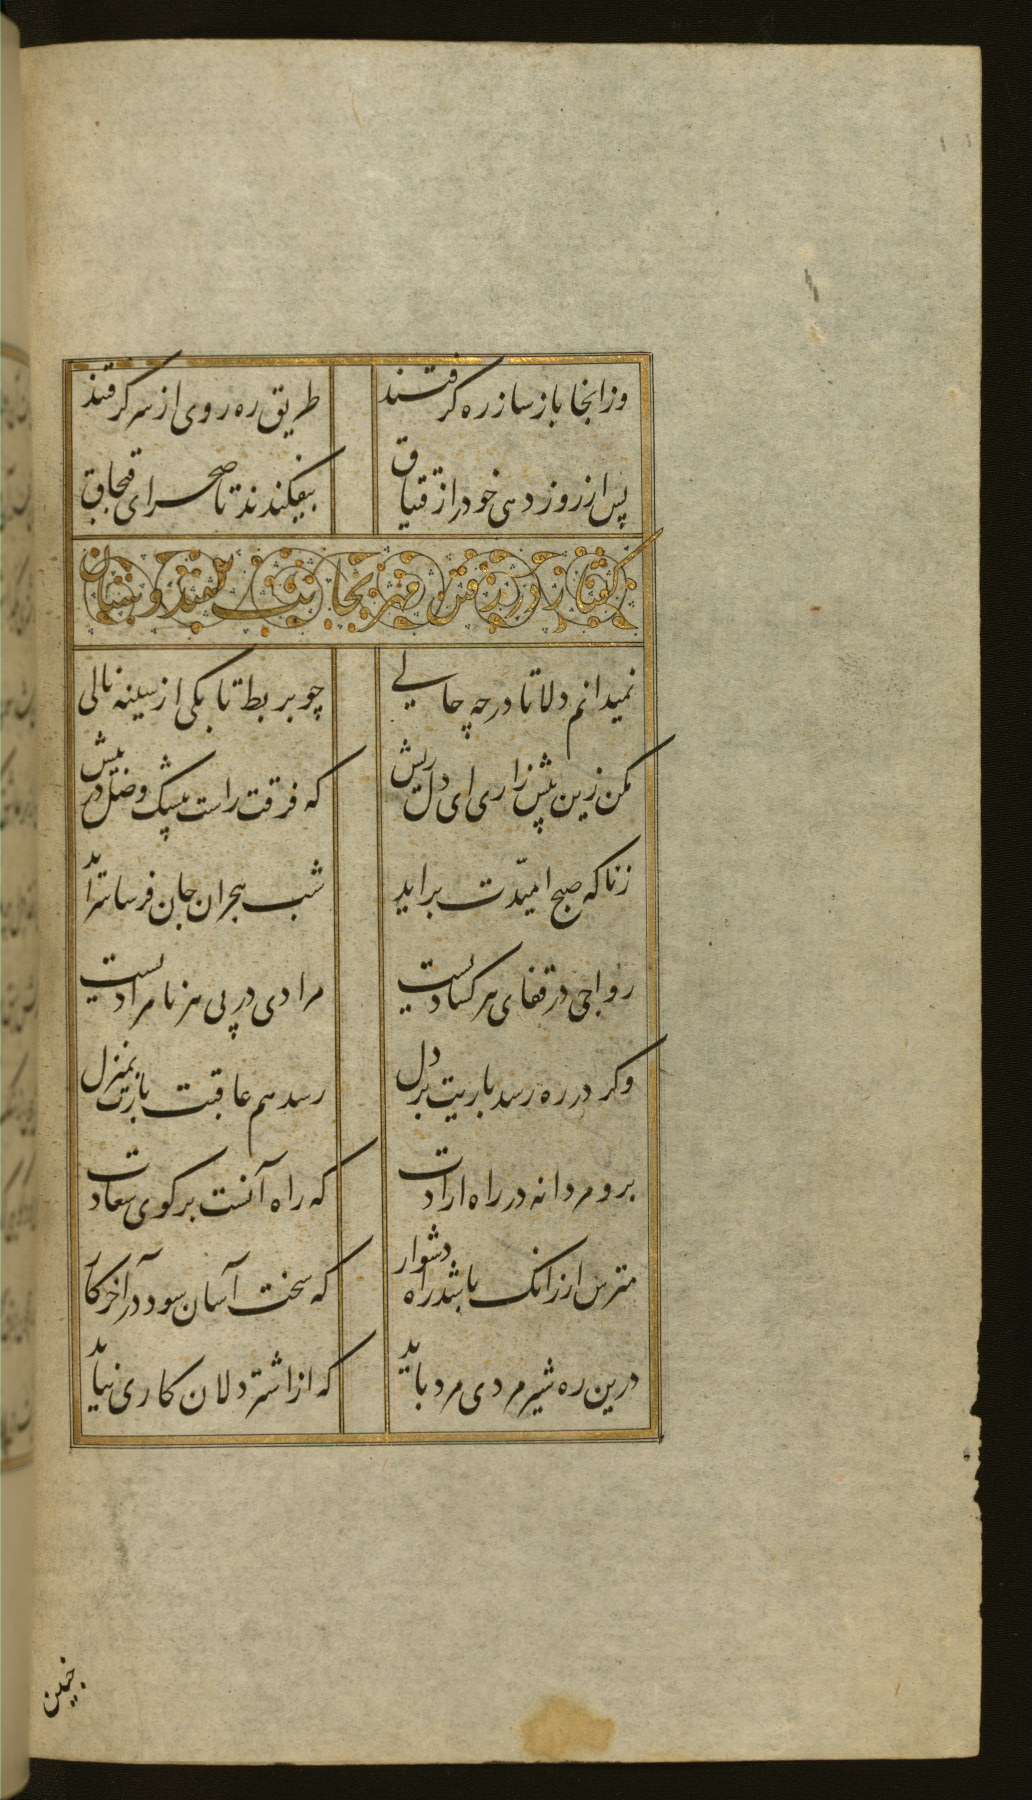 وزانجا باز ساز ره کرفتند طریق ره روی از سر کرفتند
پس از روز دهی خود را ز قپاق بیفکندند تا صحرای قبچاق
کفتار در رفتن مهر بجانب سمندر و بنیان
نمیدانم دلا تا در چه حالی چو بربط تا بکی از سینه نالی
مکن زین پیش زاری ای دل ریش که فرقت راست بیشک وصل در پیش
زناکه صبح امیدت براید شب هجران جان فرسا سراید
رواجی در قفای هر کسادیست مرادی در پی هر نامرادیست
وکر در ره رسد باریت بر دل رسد هم عاقبت بارت بمنزل
برو مردانه در راه ارادت که راه آنست بر کوی سعادت
مترس ارزانک باشد راه دشوار که سخت آسان سود در آخر کار
درین ره شیر مردی مرد باید که از اشتر دلان کاری نیاید